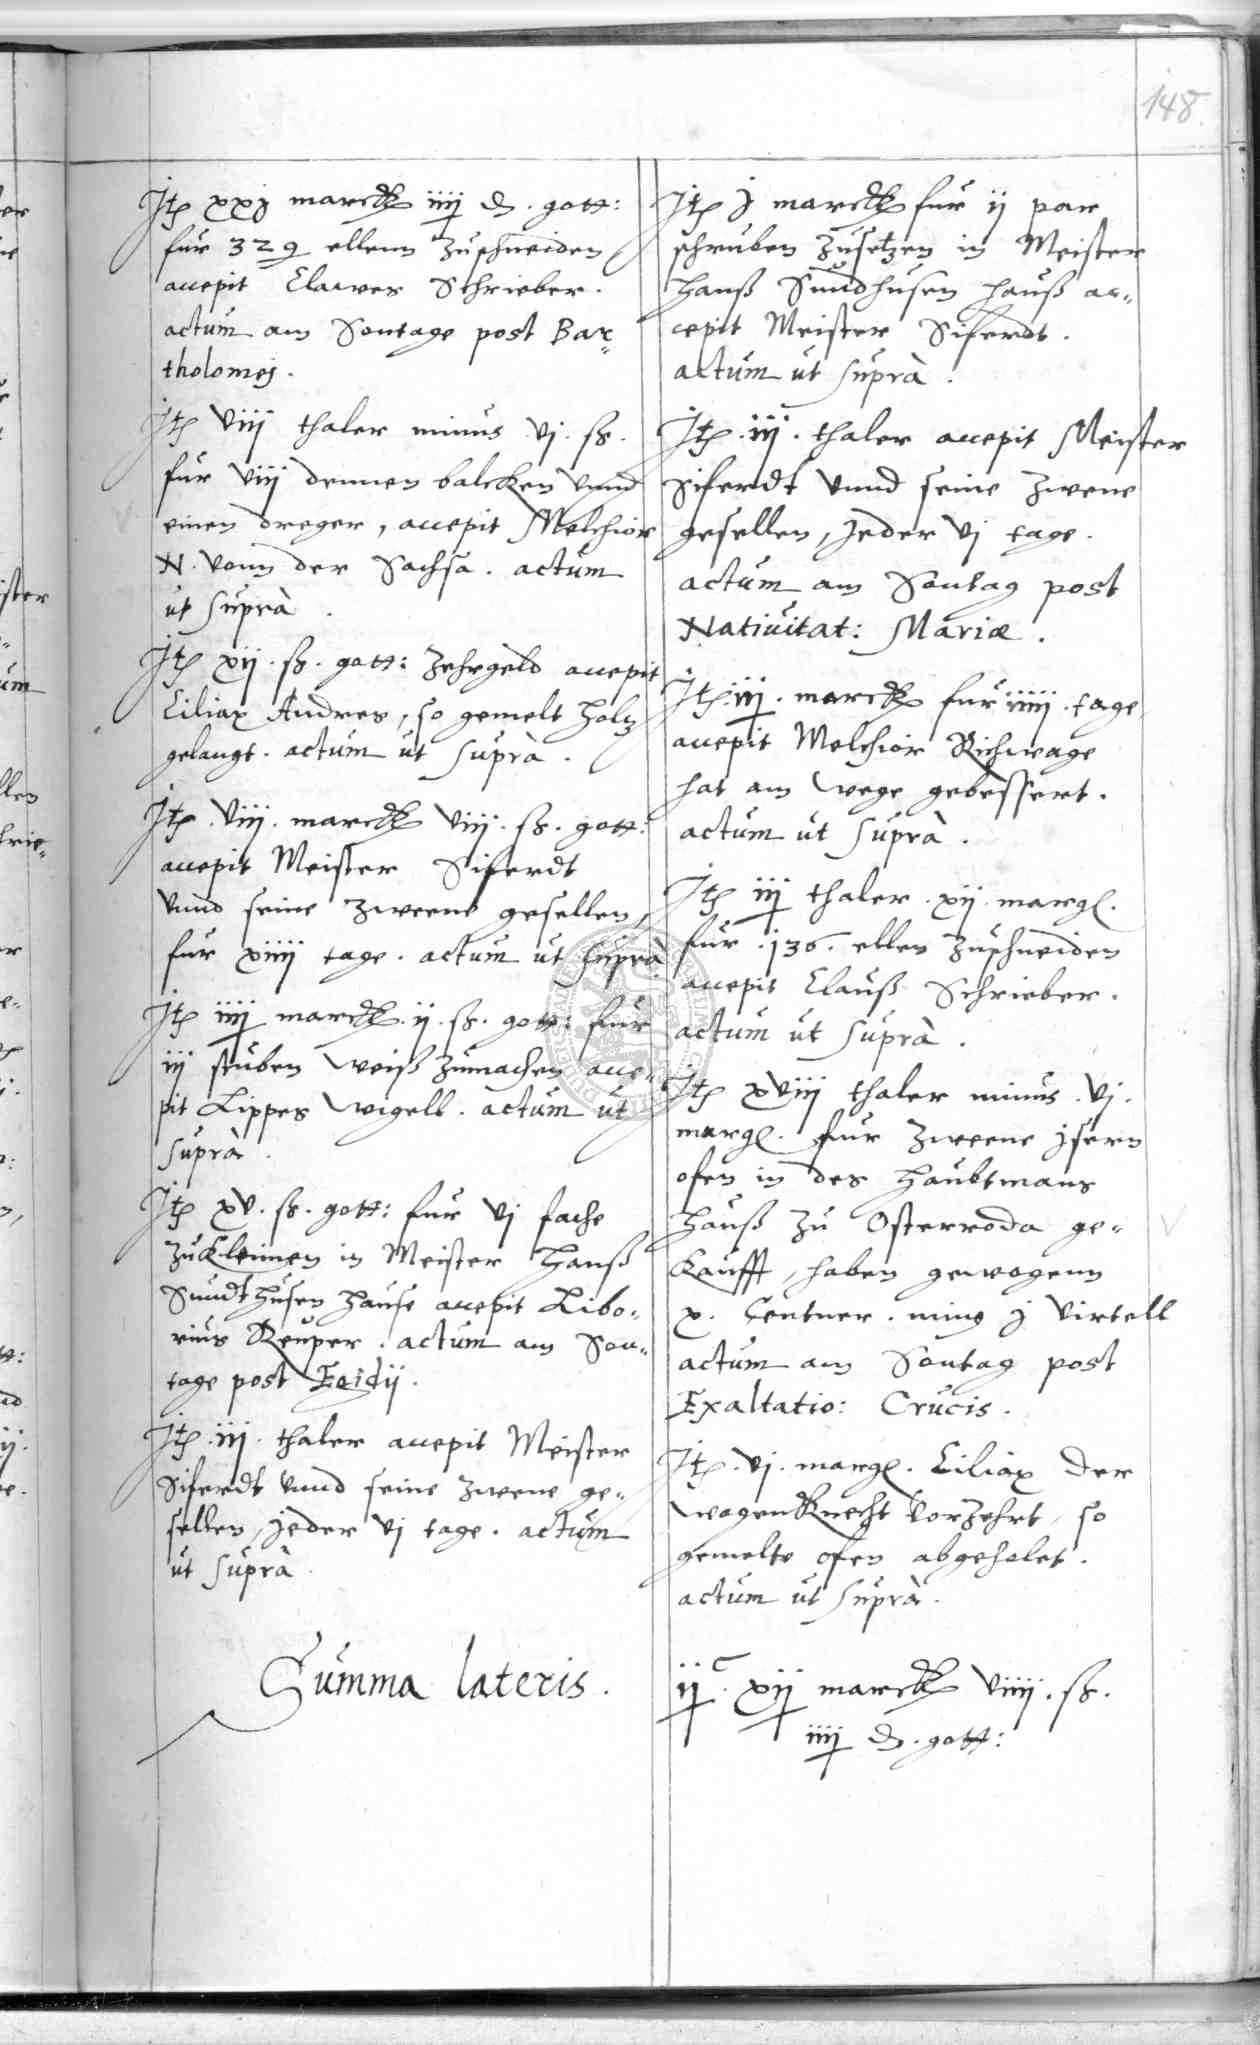 148.
Jtem xxj marck iiij d. gott:
fur 329 ellenn zuschneiden
accepit Clawes Schrieber.
actum am Sontage post Bar„
tholomej.
Jtem viij thaler minus vj. ß.
fur viij dennen balcken vnnd
einen dreger, accepit Melchior
N. vonn der Sachsa. actum
ut suprà.
Jtem xij. ß. gott: zehrgeld accepit
Ciliax Andres, so gemelt holz
gelangt. actum ut suprà.
Jtem. viij. marck viij. ß. gott:
accepit Meister Siferdt
vnnd seine zweene gesellen,
fur xiiij tage. actum ut suprà.
Jtem iiij marck. ij. ß. gott: fur
iij stuben weiß zumachen acce„
pit Lippes Wigell. actum ut
suprà.
Jtem xv. ß. gott: fur vj fache
zukleimen in Meister Hanß
Sundthusen Hause accepit Libo„
rius Keuper. actum am Son„
tage post Egidij.
Jtem .iij. thaler accepit Meister
Siferdt vnnd seine zweene ge„
sellen, jeder vj tage. actum
ut suprà.
Summa lateris.
Jtem j marck fur ij par
schruben zusetzen in Meister
Hanß Sundhusen Hauß ac„
cepit Meister Siferdt.
actum ut suprà.
Jtem .iij. thaler accepit Meister
Siferdt vnnd seine zwene
gesellen, Jeder vj tage.
actum am Sontag post
Natiuitat: Mariæ.
Jtem .iij. marck fur iiiij. tage
accepit Melchior Richwage
hat am wege gebessert.
actum ut suprà.
Jtem iij thaler .xij. margl.
fur .136. ellen zuschneiden
accepit Clauß Schrieber.
actum ut suprà.
Jtem xviij thaler minus .vj.
margl. fur zweene jsern
ofen in des Haubtmans
Hauß zu Osterroda ge„
kaufft, haben gewogenn
x. Centner. ming j virtell
actum am Sontag post
Exaltatio: Crucis.
Jtem .vj. margl. Ciliax der
wagenKnecht vorzehrt, so
gemelte ofen abgeholet.
actum ut suprà.
ij C. xij marck viiij. ß.
iiij d. gott: